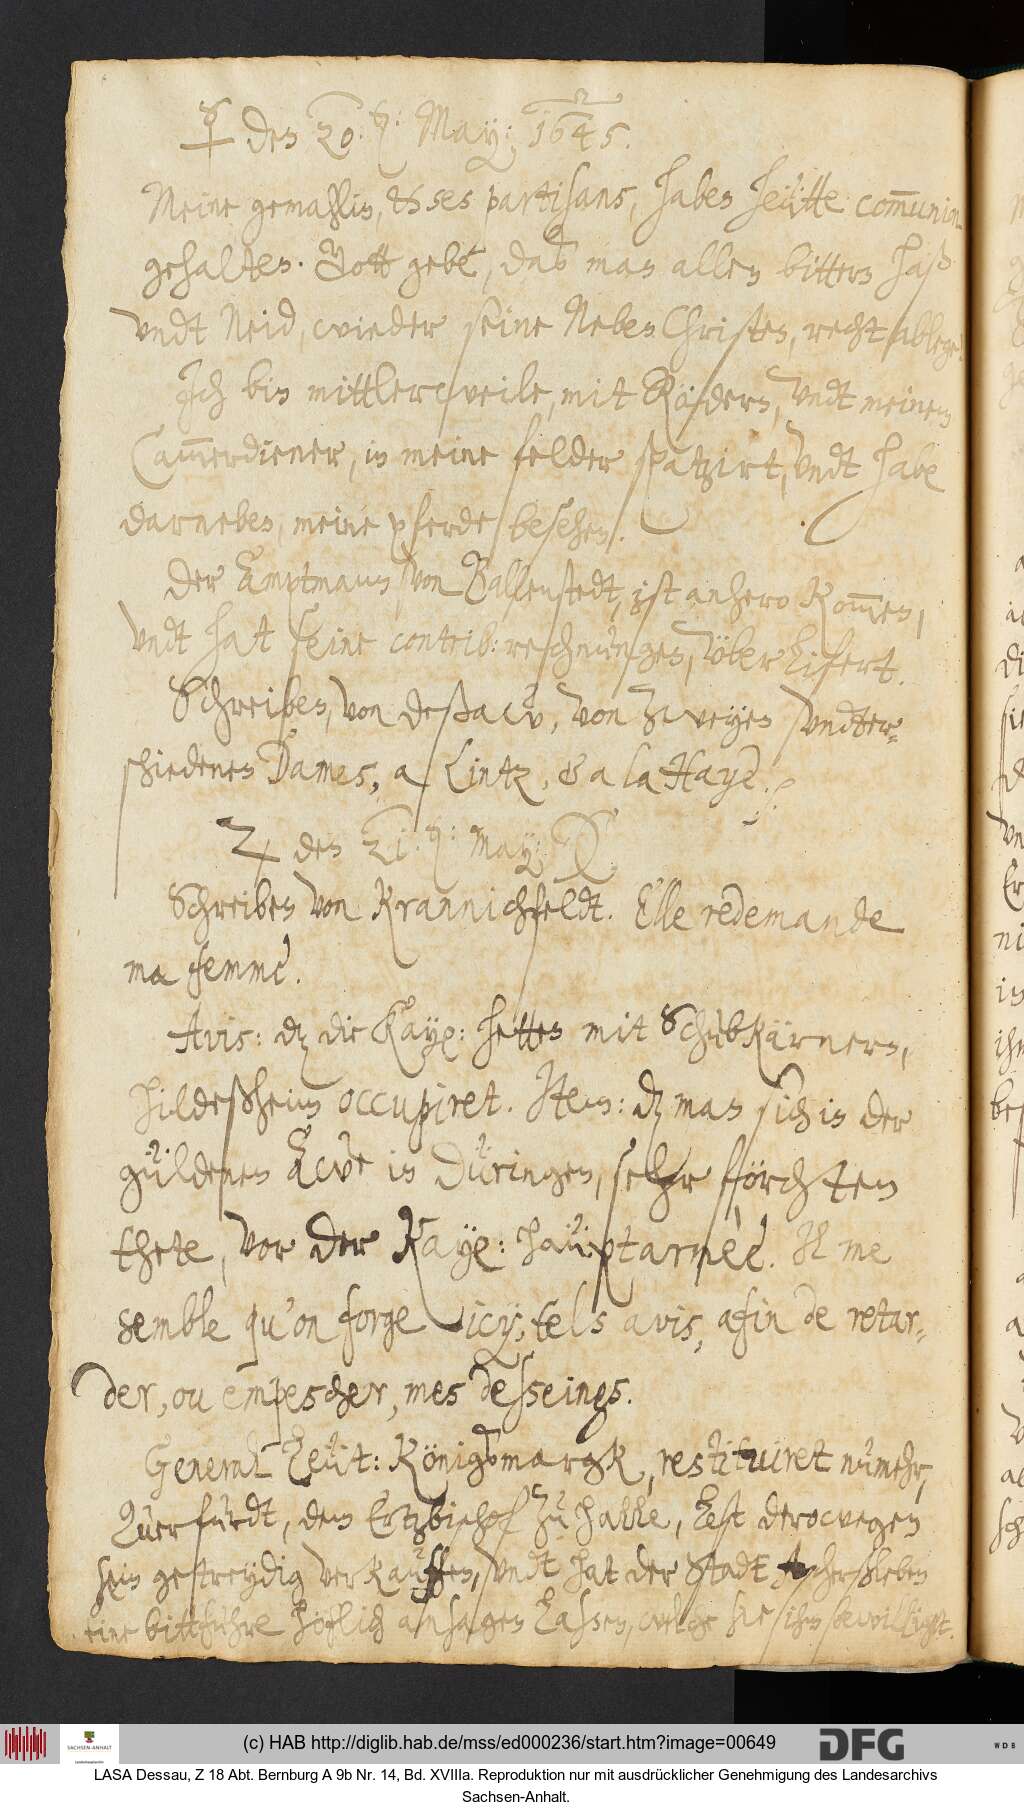 ☿ den 20. May: 1645.
Meine gemahlin, & ses partisans, haben heütte com̅union
gehalten. Gott gebe, das man allen bittern haß
vndt Neid, wieder seine Neben Christen, recht ablege.
Ich bin mittlerweile, mit Räydern, vndt meinem
Cam̅erdiener, in meine felder spatzirt, vndt habe
darneben, meine pferde besehen.
Der Amptmann von Ballenstedt, ist anhero kom̅en,
vndt hat seine contrib: rechnungen, vberliefert.
Schreiben, von Deßaw, von zweyen vndter-
schiedenen Dames, a Lintz, & a la Haye.
♃ den 21. May:
Schreiben von Krannichfeldt. Elle redemande
ma femme.
Avis: dz die Kayß: hetten mit Schubkärnern,
Hildeßheim occupiret. Item: dz man sich in der
güldenen Awe in Düringen, sehr förchten
thete, vor der Kayß: haüptarmèe. Il me
semble qu'on forge icy, tels avis, afin de retar-
der, ou empescher, mes desseings.
General Leüt: Königßmargk, restituiret numehr,
Querfurdt, dem Ertzbischof zu halle, Lest derowegen
sein getreydig verkauffen, vndt hat der Stadt Aschersleben
eine bittfuhre höflich ansagen laßen, welche sie ihm bewilligt.
(c) HAB http://diglib.hab.de/mss/ed000236/start.htm?image=00649
SACHSEN-ANHALT
DFG
WDB
LASA Dessau, Z 18 Abt. Bernburg A 9b Nr. 14, Bd. XVIIIa. Reproduktion nur mit ausdrücklicher Genehmigung des Landesarchivs
Sachsen-Anhalt.